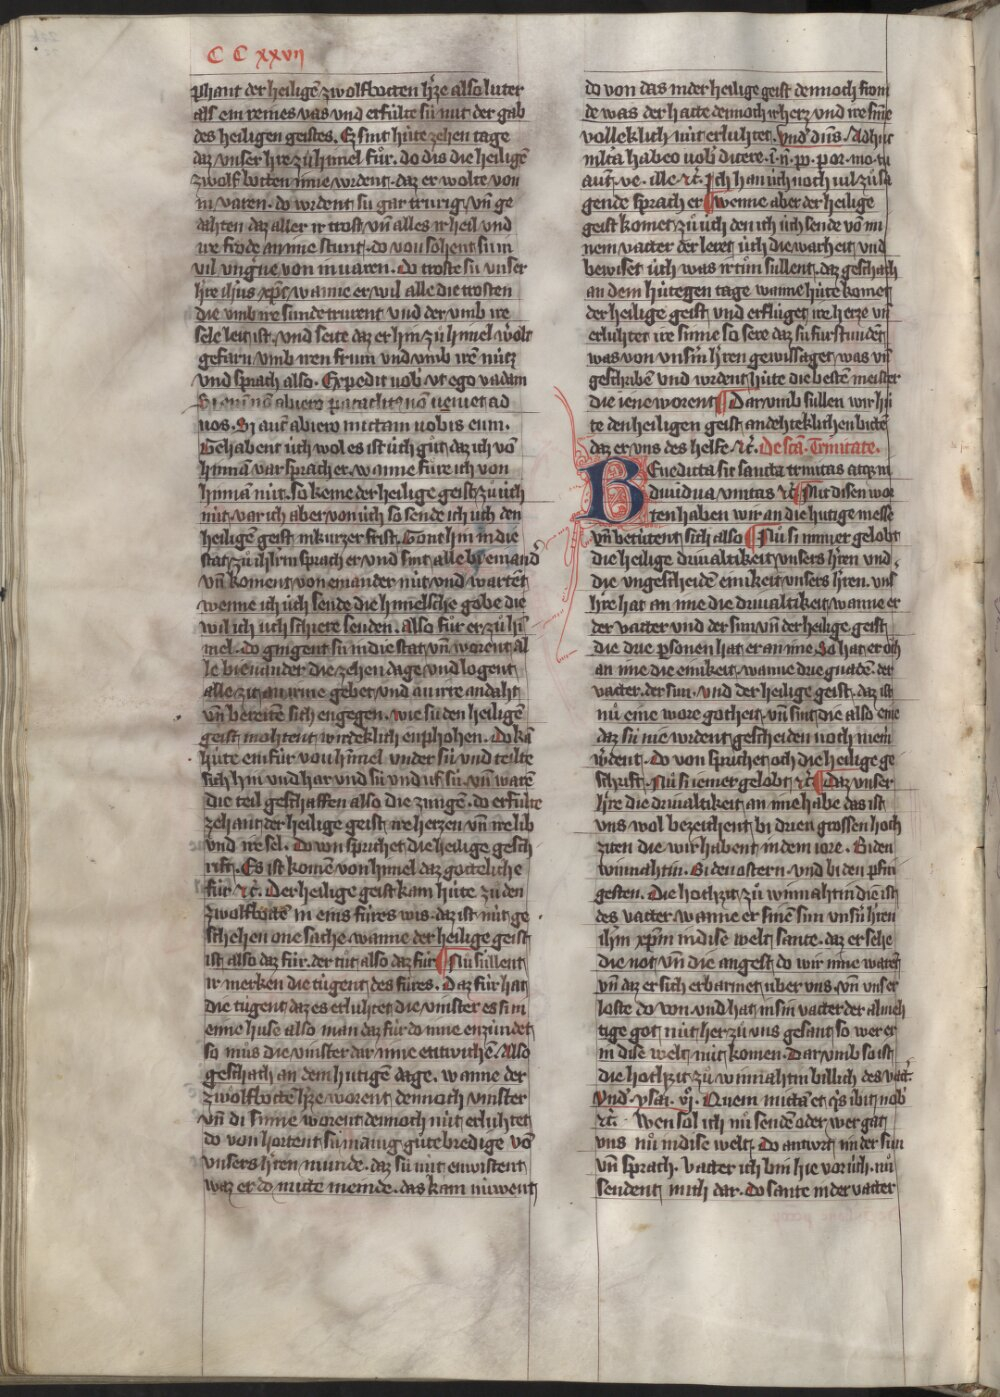 C C xxvii
phant der heiligē zwolfbotten h'ze also luter
als ein reines vas vnd erfulte sú mit der gab
des heiligen geistes. Ez sint húte zehen tage
daz vnser h're zů himel fůr. do dis die heiligē
zwolfbotten inne wrdent. daz er wolte von
in varen. do wrdent sú gar trurig. vn̄ ge
dahten daz aller ir trost vn̄ alles ir heil vnd
ire frode an ime stunt. do von sohent sú in
vil vng'ne von in varen. Do troste sú vnser
h're ih̄us xp̄c wanne er wil alle die trosten
die vmb ire sunde trurent vnd der vmb ire
sele leit ist. vnd seite daz er hin zů himel wolt
gefarn vmb iren frum vnd vmb irē nutz
vnd sprach also. Expedit vob' vt ego vadam
Si enim nō abiero paraclitꝰ nō ueniet ad
uos. Si aut' abiero mittam uobis eum.
Gehabent úch wol es ist úch gůt daz ich vō
hinnā var sprach er. wanne fúre ich von
hinnā nút. so keme der heilige geist zů úch
nút. var ich aber von úch so sende ich úch den
heiligē geist in kurzer frist. Gont hin in die
stat zů ih'rl'm sprach er vnd sint alle bi einand'
vn̄ koment von einander nút vnd wartēt
wenne ich úch sende die himelsche gobe die
wil ich úch schiere senden. also fůr er zů hi
mel. do gingent sú in die stat vn̄ worent al
le bienander die zehen dage vnd logent
alle zit an irme gebet vnd an irre andaht
vn̄ bereitē sich engegen. wie sú den heiligē
geist mohtent wirdeklich enphohen. Do kā
húte ein fúr von himel vnder sú vnd teilte
sich hin vnd har vnd sú vnd vf sú. vn̄ warē
die teil geschaffen also die zungē. do erfulte
zehant der heilige geist ire herzen vn̄ ire lib
vnd ire sel. do von sprichet die heilige gesch
rift. Es ist komē von himel daz gotteliche
fúr ⁊c̄. Der heilige geist kam húte zu den
zwolfbottē in eins fúres wis. daz ist nút ge
schehen one sache. wanne der heilige geist
ist also daz fúr. der tůt also daz fúr. Nu súllent
ir merken die túgent des fúres. Daz fúr hat
die túgent daz es erluhtet die vinster es si in
eime huse also man daz fúr do inne enzúndet
so můs die vinster dar inne entwichē. Also
geschach an dem hutigē dage. wanne der
zwolfbottē h'ze worent dennoch vinster
vn̄ di sinne worent dennoch nút erluhtet
do von hortent sú manig gůte bredige vō
vnsers h'ren munde. daz sú nút enwistent
waz er do mitte meinde. das kam nuwent
do von das in der heilige geist dennoch from
de was der hatte dennoch ir herz vnd ire sinne
volleklich nút erluhtet. vnd' dn̄s. Adhuc
ml'ta habeo uob' dicere. ⁊ n̄. po. por. mo. cū
aut'. ve. ille ⁊c̄. Ich han úch noch vil zů sa
gende sprach er wenne aber der heilige
geist komet zů úch den ich úch sende vō mi
nem vatter der leret úch die warheit vnd
bewiset úch was ir tůn sullent. daz geschach
an dem hútegen tage wanne húte komet
der heilige geist vnd erfluget ire herze vn̄
erluhtet ire sinne so sere daz sú fúrstundēt
was von vnsm̄ h'ren gewissaget was vn̄
geschribē vnd wrdent húte die bestē meister
die iene worent. Darvmb sullen wir hú
te den heiligen geist andehteklichen bittē
daz er vns des helfe. ⁊c̄. De scā. Trinitate.
Benedicta sit sancta trinitas atqꝫ in
diuidua vnitas ⁊c̄ Mit disen wor
ten haben wir an die hutige messe
vn̄ betútent sich also Nu si immer gelobt
die heilige driualtikeit vnsers h'ren vnd
die vngescheidē einikeit vnsers h'ren. vns'
h're hat an ime die driualtikeit wanne er
der vatter vnd der sun vn̄ der heilige geist
die drie p'sonen hat er an ime. So hat er och
an ime die einikeit. wanne drie gnadē. der
vatter. der sun. vnd der heilige geist. daz ist
nů eine wore gotheit. vn̄ sint die also eine
daz sú nie wrdent gescheiden noch niem'
w'dent. Do von sprichet och die heilige ge
schrift. Nu si iemer gelobt ⁊c̄ Daz vnser
h're die driualtikeit an ime habe das ist
vns wol bezeichent bi drien grossen hoch
ziten die wir habent in dem iore. Bi den
winnahtin. Bi den ostern. vnd bi den pfin
gesten. Die hochzit zů winnahtin die ist
des vatter wanne er sinē sun vnsn̄ h'ren
ih̄m xp̄m in dise welt sante. daz er sehe
die not vn̄ die angest do wir inne warēt
vn̄ daz er sich erbarmet uber vns. vn̄ vnser
loste do von. vnd hat in sin vatter der almeh
tige got nút her zů vns gesant so wer er
in dise welt nút komen. Darvmb so ist
die hochzit zů winnahtin billich des vatt'.
Vnd' ysa. vj. Quem mittā et q's ibit nob'
⁊c̄. Wen sol ich nů sendē oder wer gat
vns nů in dise welt. Do antwrt im der sun
vn̄ sprach. vatter ich bin hie vor úch. nů
sendent mich dar. Do sante in der vatter